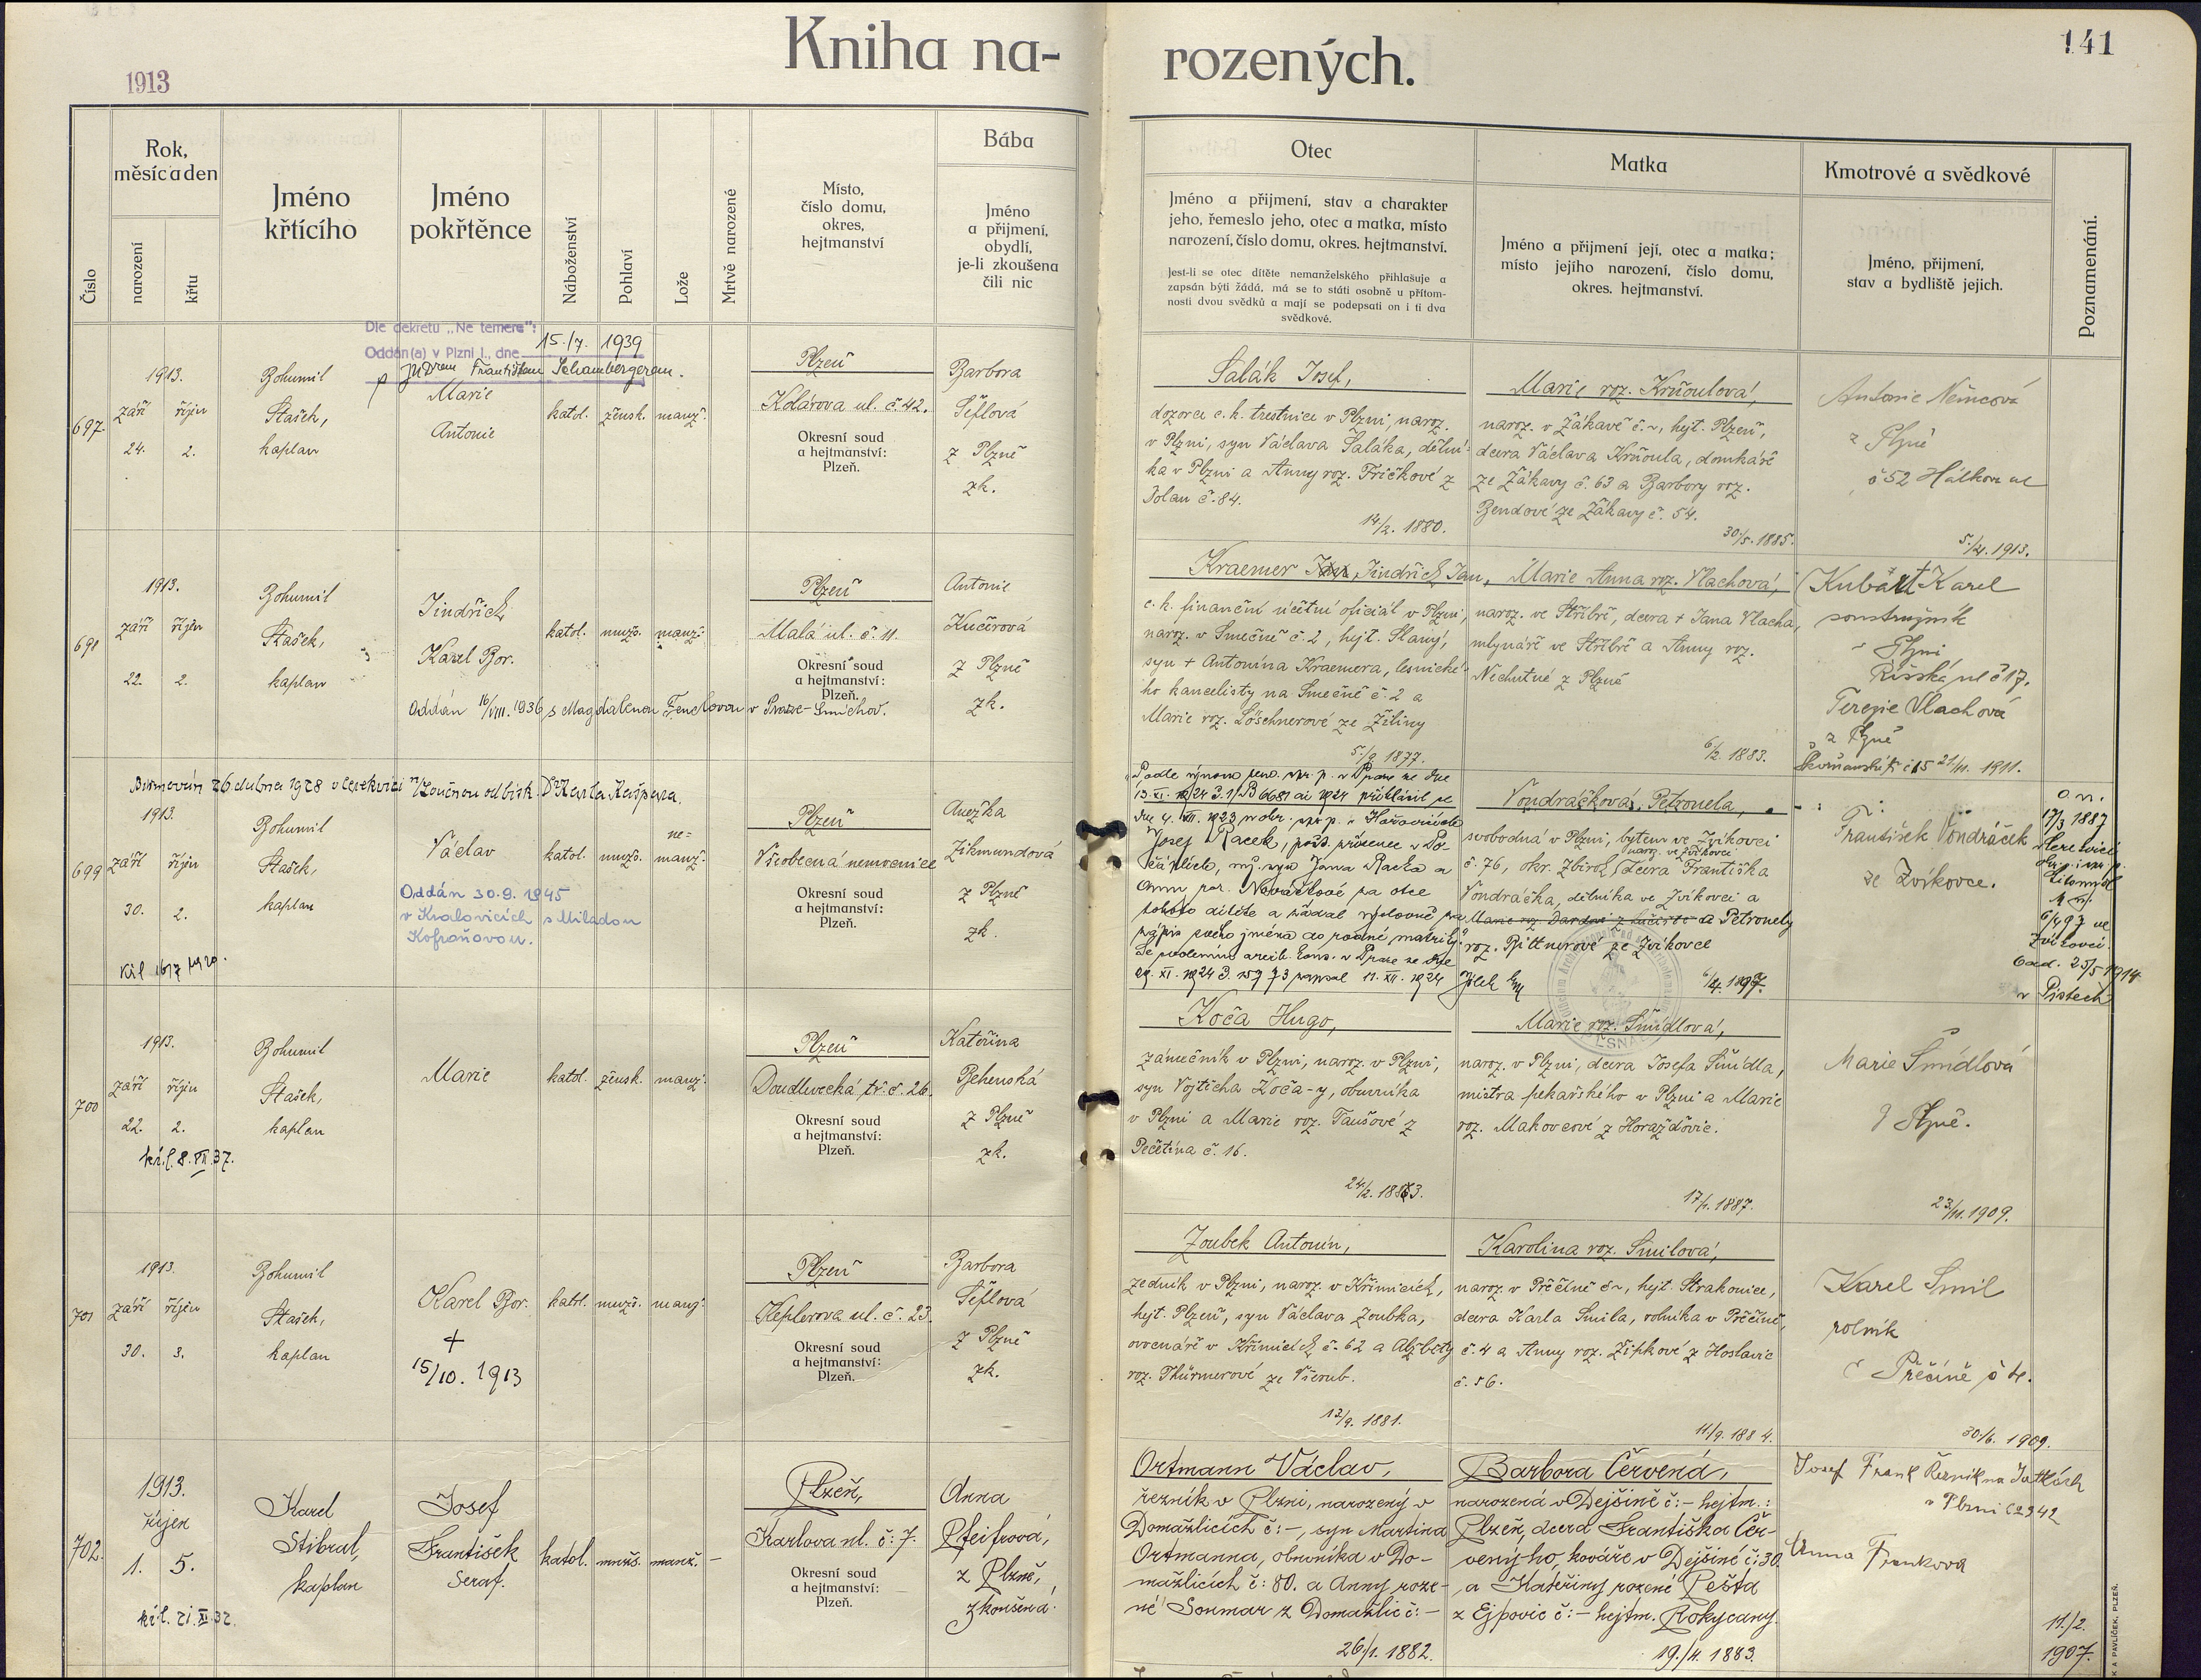 Kniha na-
rozených.
141
1913
Číslo
Rok,
měsíc a den
narození
křtu
Jméno
křtícího
Jméno
pokřtěnce
Náboženství
Pohlaví
Lože
Mrtvě narozené
Místo,
číslo domu,
okres,
hejtmanství
Bába
Jméno
a přijmení,
obydlí,
je-li zkoušena
čili nic
Otec
Jméno a přijmení, stav a charakter
jeho, řemeslo jeho, otec a matka, místo
narození, číslo domu, okres, hejtmanství.
Jest-li se otec dítěte nemanželského přihlašuje a
zapsán býti žádá, má se to státi osobně u přítom-
nosti dvou svědků a mají se podepsati on i ti dva
svědkové.
Matka
Jméno a přijmení její, otec a matka;
místo jejího narození, číslo domu,
okres, hejtmanství.
Kmotrové a svědkové
Jméno, přijmení,
stav a bydliště jejich.
Poznamenání.
Dle dekretu „Ne temere":
Oddán(a) v Plzni I., dne 15./7. 1939
JUDrem Františkem Schambergerem.
697.
1913.
září
24.
říjen
2.
Bohumil
Stašek,
kaplan
Marie
Antonie
katol.
žensk.
manž.
Plzeň
Kolárova ul. č. 42.
Okresní soud
a hejtmanství:
Plzeň.
Barbora
Šiflová
z Plzně
zk.
Šalák Josef,
dozorce c. k. trestnice v Plzni, naroz.
v Plzni, syn Václava Šaláka, dělní-
ka v Plzni a Anny roz. Fričkové z
Dolan č. 84.
14/2. 1880.
Marie roz. Krňoulová,
naroz. v Žákavě č. ~, hejt. Plzeň,
dcera Václava Krňoula, domkáře
ze Žákavy č. 63 a Barbory roz.
Bendové ze Žákavy č. 54.
30/5. 1885.
Antonie Němcová
z Plzně
č 52 Hálkova ul
5./21. 1913.
698
1913.
září
22.
říjen
2.
Bohumil
Stašek,
kaplan
Jindřich
Karel Bor.
katol.
mužs.
manž.
Plzeň
Malá ul. č. 11.
Okresní soud
a hejtmanství:
Plzeň.
Antonie
Kučerová
z Plzně
zk.
Oddán 16/VIII. 1936 s Magdalenou Fenclovou v Praze-Smíchov.
Kraemer Jindřich Jan,
c. k. finanční účetní oficiál v Plzni,
naroz. v Smečně č. 2, hejt. Slaný,
syn + Antonína Kraemera, lesnické-
ho kancelisty na Smečně č. 2 a
Marie roz. Löschnerové ze Žiliny
5./9 1877.
Marie Anna roz. Vlachová,
naroz. ve Stříbře, dcera + Jana Vlacha,
mlynáře ve Stříbře a Anny roz.
Nechutné z Plzně
6/2. 1883.
Kubát Karel
soustružník
Plzni
Říšská ul č 17.
Terezie Vlachová
z Plzně
č 15 21/11. 1911.
Biřmován 26 dubna 1928 v Cerekvici n/Loučnou od bisk. Dr Karla Kašpara.
699
1913.
září
30.
říjen
2.
Bohumil
Stašek,
kaplan
Václav
katol.
mužs.
ne-
manž.
Plzeň
Všeobecná nemocnice
Okresní soud
a hejtmanství:
Plzeň.
Anežka
Zikmundová
z Plzně
zk.
Oddán 30. 9. 1945
v Kralovicích s Miladou
Kofroňovou.
Josef Racek,
Vondráčková, Petronela,
svobodná v Plzni, bytem ve Zvíkovci
naroz. ve Zvíkovci
č. 76, okr. Zbiroh, dcera Františka
Vondráčka, dělníka ve Zvíkovci a
a Petronely
roz. Bittnerové ze Zvíkovce
6/4. 1897.
František Vondráček
ze Zvíkovce.
o. n.
17/3 1887
M. n.
6/4 97 ve
Zvíkovci.
Odd. 25/5 1914
v Pistech
700
1913.
září
22.
říjen
2.
Bohumil
Stašek,
kaplan
Marie
katol.
žensk.
manž.
Plzeň
Doudlevecká tř. č. 26.
Okresní soud
a hejtmanství:
Plzeň.
Kateřina
Behenská
z Plzně
zk.
kř. l. 8. XII. 37.
Koča Hugo,
zámečník v Plzni, naroz. v Plzni,
syn Vojtěcha Koča-y, obuvníka
v Plzni a Marie roz. Taušové z
Pečetína č. 16.
24/2. 1883.
Marie roz. Šmídlová,
naroz. v Plzni, dcera Josefa Šmídla,
mistra pekařského v Plzni a Marie
roz. Mahovcové z Horažďovic.
17/1. 1887.
Marie Šmídlová
z Plzně.
23/11. 1909.
701
1913.
září
30.
říjen
3.
Bohumil
Stašek,
kaplan
Karel Bor.
+
15/10. 1913
katol.
mužs.
manž.
Plzeň
Keplerova ul. č. 23.
Okresní soud
a hejtmanství:
Plzeň.
Barbora
Šiflová
z Plzně
zk.
Zoubek Antonín,
zedník v Plzni, naroz. v Křimicích,
hejt. Plzeň, syn Václava Zoubka,
ovocnáře v Křimicích č. 62 a Alžběty
roz. Thürmerové ze Všerub.
12/9. 1881.
Karolina roz. Smilová,
naroz. v Přečíně č ~, hejt. Strakonice,
dcera Karla Smila, rolníka v Přečíně,
č. 4 a Anny roz. Zípkové z Hoslavic
č. 56.
11/9. 1884.
Karel Smil
rolník
Přečíně č 4.
30/6. 1909.
702.
1913.
říjen
1.
5.
Karel
Stibral,
kaplan
Josef
František
Seraf.
katol.
mužs.
manž.
–
Plzeň,
Karlova ul. č: 7.
Okresní soud
a hejtmanství:
Plzeň.
Anna
Pfeifrová,
z Plzně,
zkoušená.
kř. l. 21. XI. 37.
Ortmann Václav,
řezník v Plzni, narozený v
Domažlicích č: –, syn Martina
Ortmanna, obuvníka v Do-
mažlicích č: 80. a Anny roze-
né Soumar z Domažlic č: –
26/1. 1882.
Barbora Červená,
narozená v Dejšině č: – hejtm.:
Plzeň, dcera Františka Čer-
veného, kováře v Dejšině č: 30
a Kateřiny rozené Pešta
z Ejpovic č: – hejtm. Rokycany.
19./4. 1883.
Josef Frank Řezník na Jatkách
v Plzni č 2342
Anna Franková
11./2.
1907.